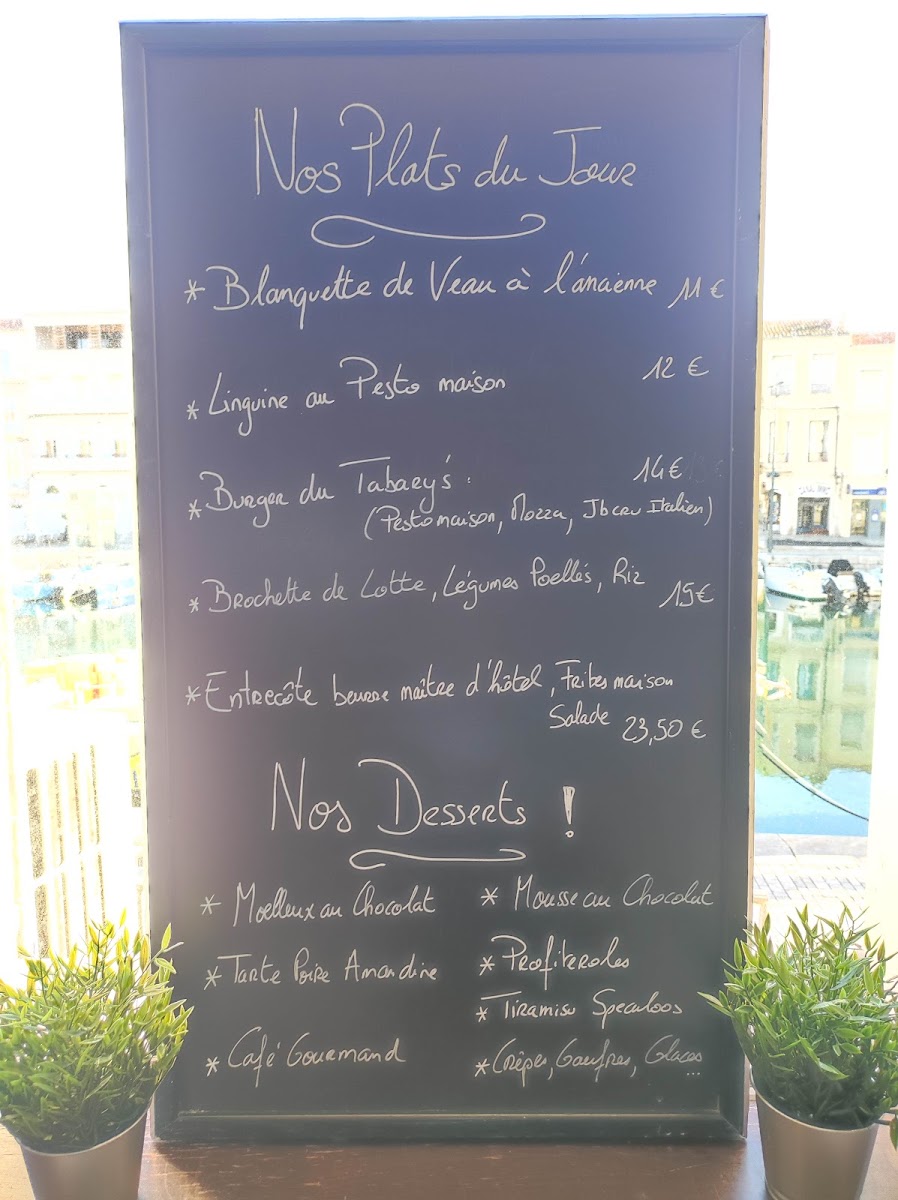 Nos Plats du Jour
* Blanquette de Veau à l'ancienne 11 €
* Linguine au Pesto maison 12 €
* Burger du Tabary's : 14 €
(Pesto maison, Mozza, Jb cru Italien)
* Brochette de Lotte, Légumes Poellés, Riz
19 €
* Entrecôte beurre maître d'hôtel, Frites maison
Salade 23,50 €
Nos Desserts !
* Moelleux au Chocolat
* Mousse au Chocolat
* Tarte Poire Amandine
* Profiteroles
* Tiramisu Speculoos
* Café Gourmand
* Crêpes, Gaufres, Glaces ...